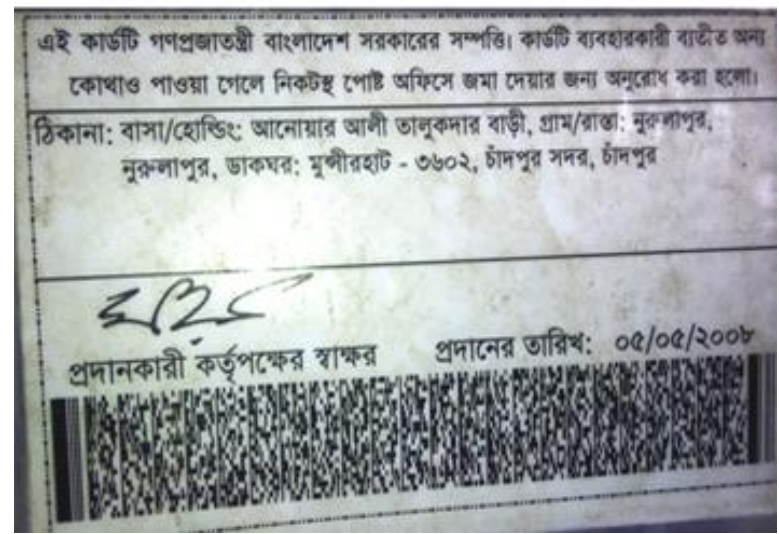 এই কার্ডটি গণপ্রজাতন্ত্রী বাংলাদেশ সরকারের সম্পত্তি। কার্ডটি ব্যবহারকারী ব্যতীত অন্য
কোথাও পাওয়া গেলে নিকটস্থ পোষ্ট অফিসে জমা দেয়ার জন্য অনুরোধ করা হলো।
ঠিকানা: বাসা/হোল্ডিং: আনোয়ার আলী তালুকদার বাড়ী, গ্রাম/রাস্তা: নুরুলাপুর,
নুরুলাপুর, ডাকঘর: মুন্সীরহাট - ৩৬০২, চাঁদপুর সদর, চাঁদপুর
প্রদানকারী কর্তৃপক্ষের স্বাক্ষর প্রদানের তারিখ: ০৫/০৫/২০০৮